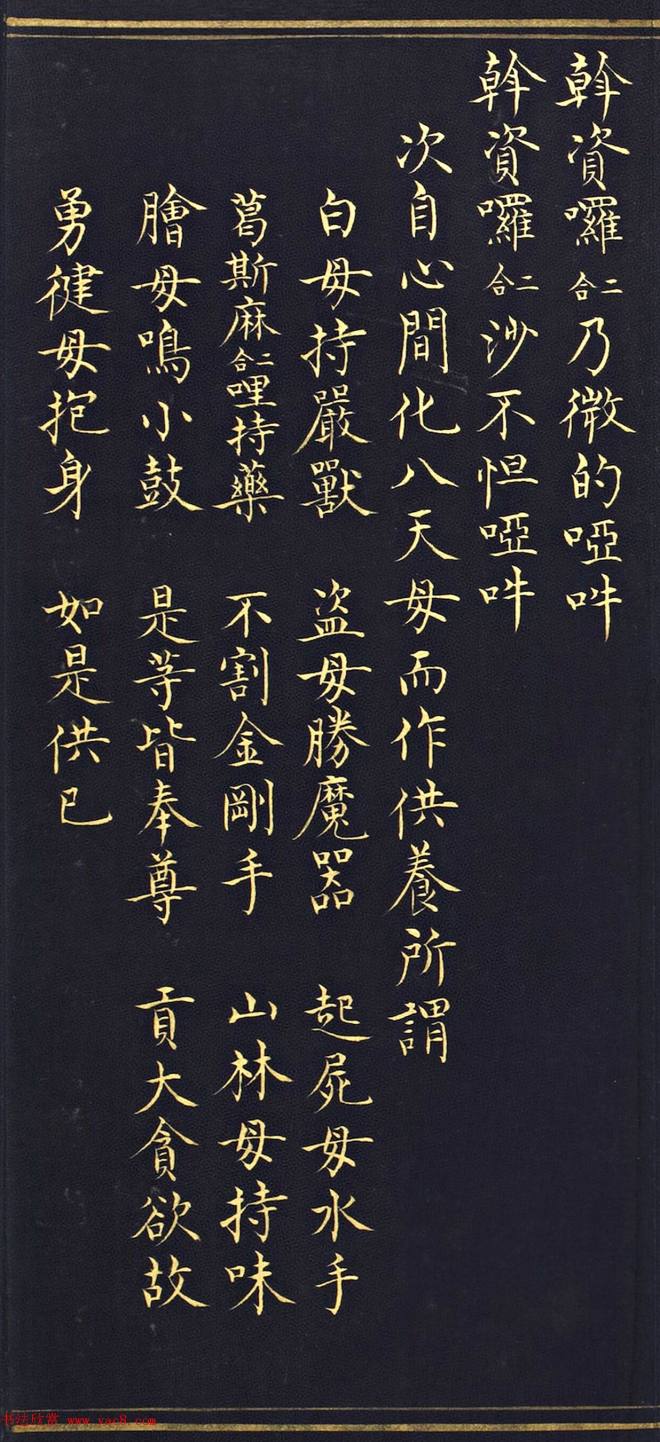 斡資囉二合乃微的啞吽
斡資囉二合沙不怛啞吽
次自心間化八天母而作供養所謂
白母持嚴獸 盜母勝魔器 起屍母水手
葛斯麻二合哩持藥 不割金剛手 山林母持味
膾母鳴小鼓 是等皆奉尊 貢大貪欲故
勇健母抱身 如是供已
书法欣赏 www.yac8.com